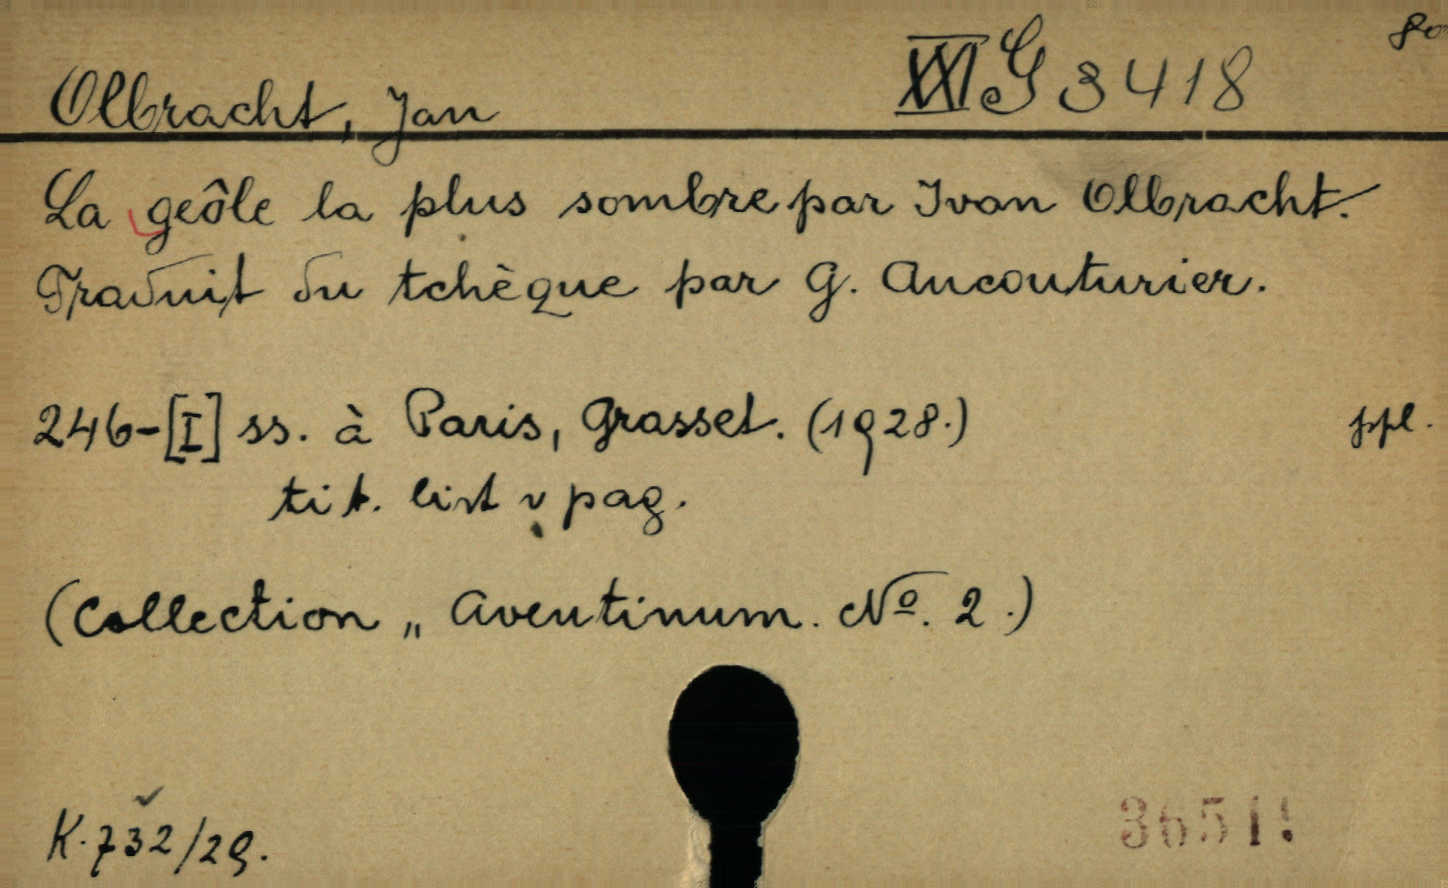 8o
XXI G 3418
Olbracht, Jan
La geôle la plus sombre par Ivan Olbracht.
Traduit du tchèque par G. Aucouturier.
246-[I] ss. à Paris, Grasset. (1928.) ppl.
tit. list v pag.
(Collection „Aventinum. No. 2.)
K.732/29.